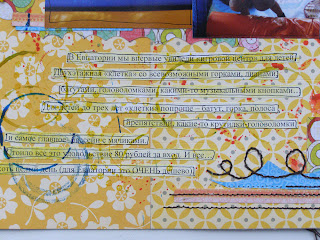 В Евпатории мы впервые увидели игровой центр для детей.
Двухэтажная «клетка» со всевозможными горками, лианами,
батутами, головоломками, какими-то музыкальными кнопками...
Для детей до трех лет «клетка» попроще – батут, горка, полоса
препятствий, какие-то крутилки-головоломки.
И самое главное – бассейн с мячиками.
Стоило все это удовольствие 80 рублей за вход. И все...
хоть целый день (для Евпатории это ОЧЕНЬ дешево)